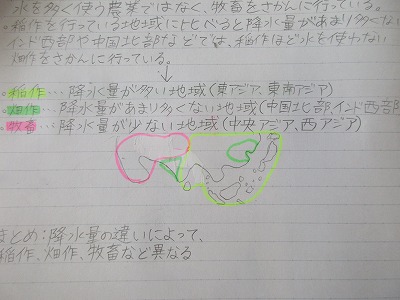 水を多く使う農業ではなく、牧畜をさかんに行っている。
・稲作を行っている地域に比べると降水量があまり多くない
インド西部や中国北部などでは、稲作ほど水を使わない
畑作をさかんに行っている。
↓
・稲作…降水量が多い地域(東アジア、東南アジア)
・畑作…降水量があまり多くない地域(中国北部、インド西部
・牧畜…降水量が少ない地域(中央アジア、西アジア)
まとめ:降水量の違いによって、
稲作、畑作、牧畜など異なる